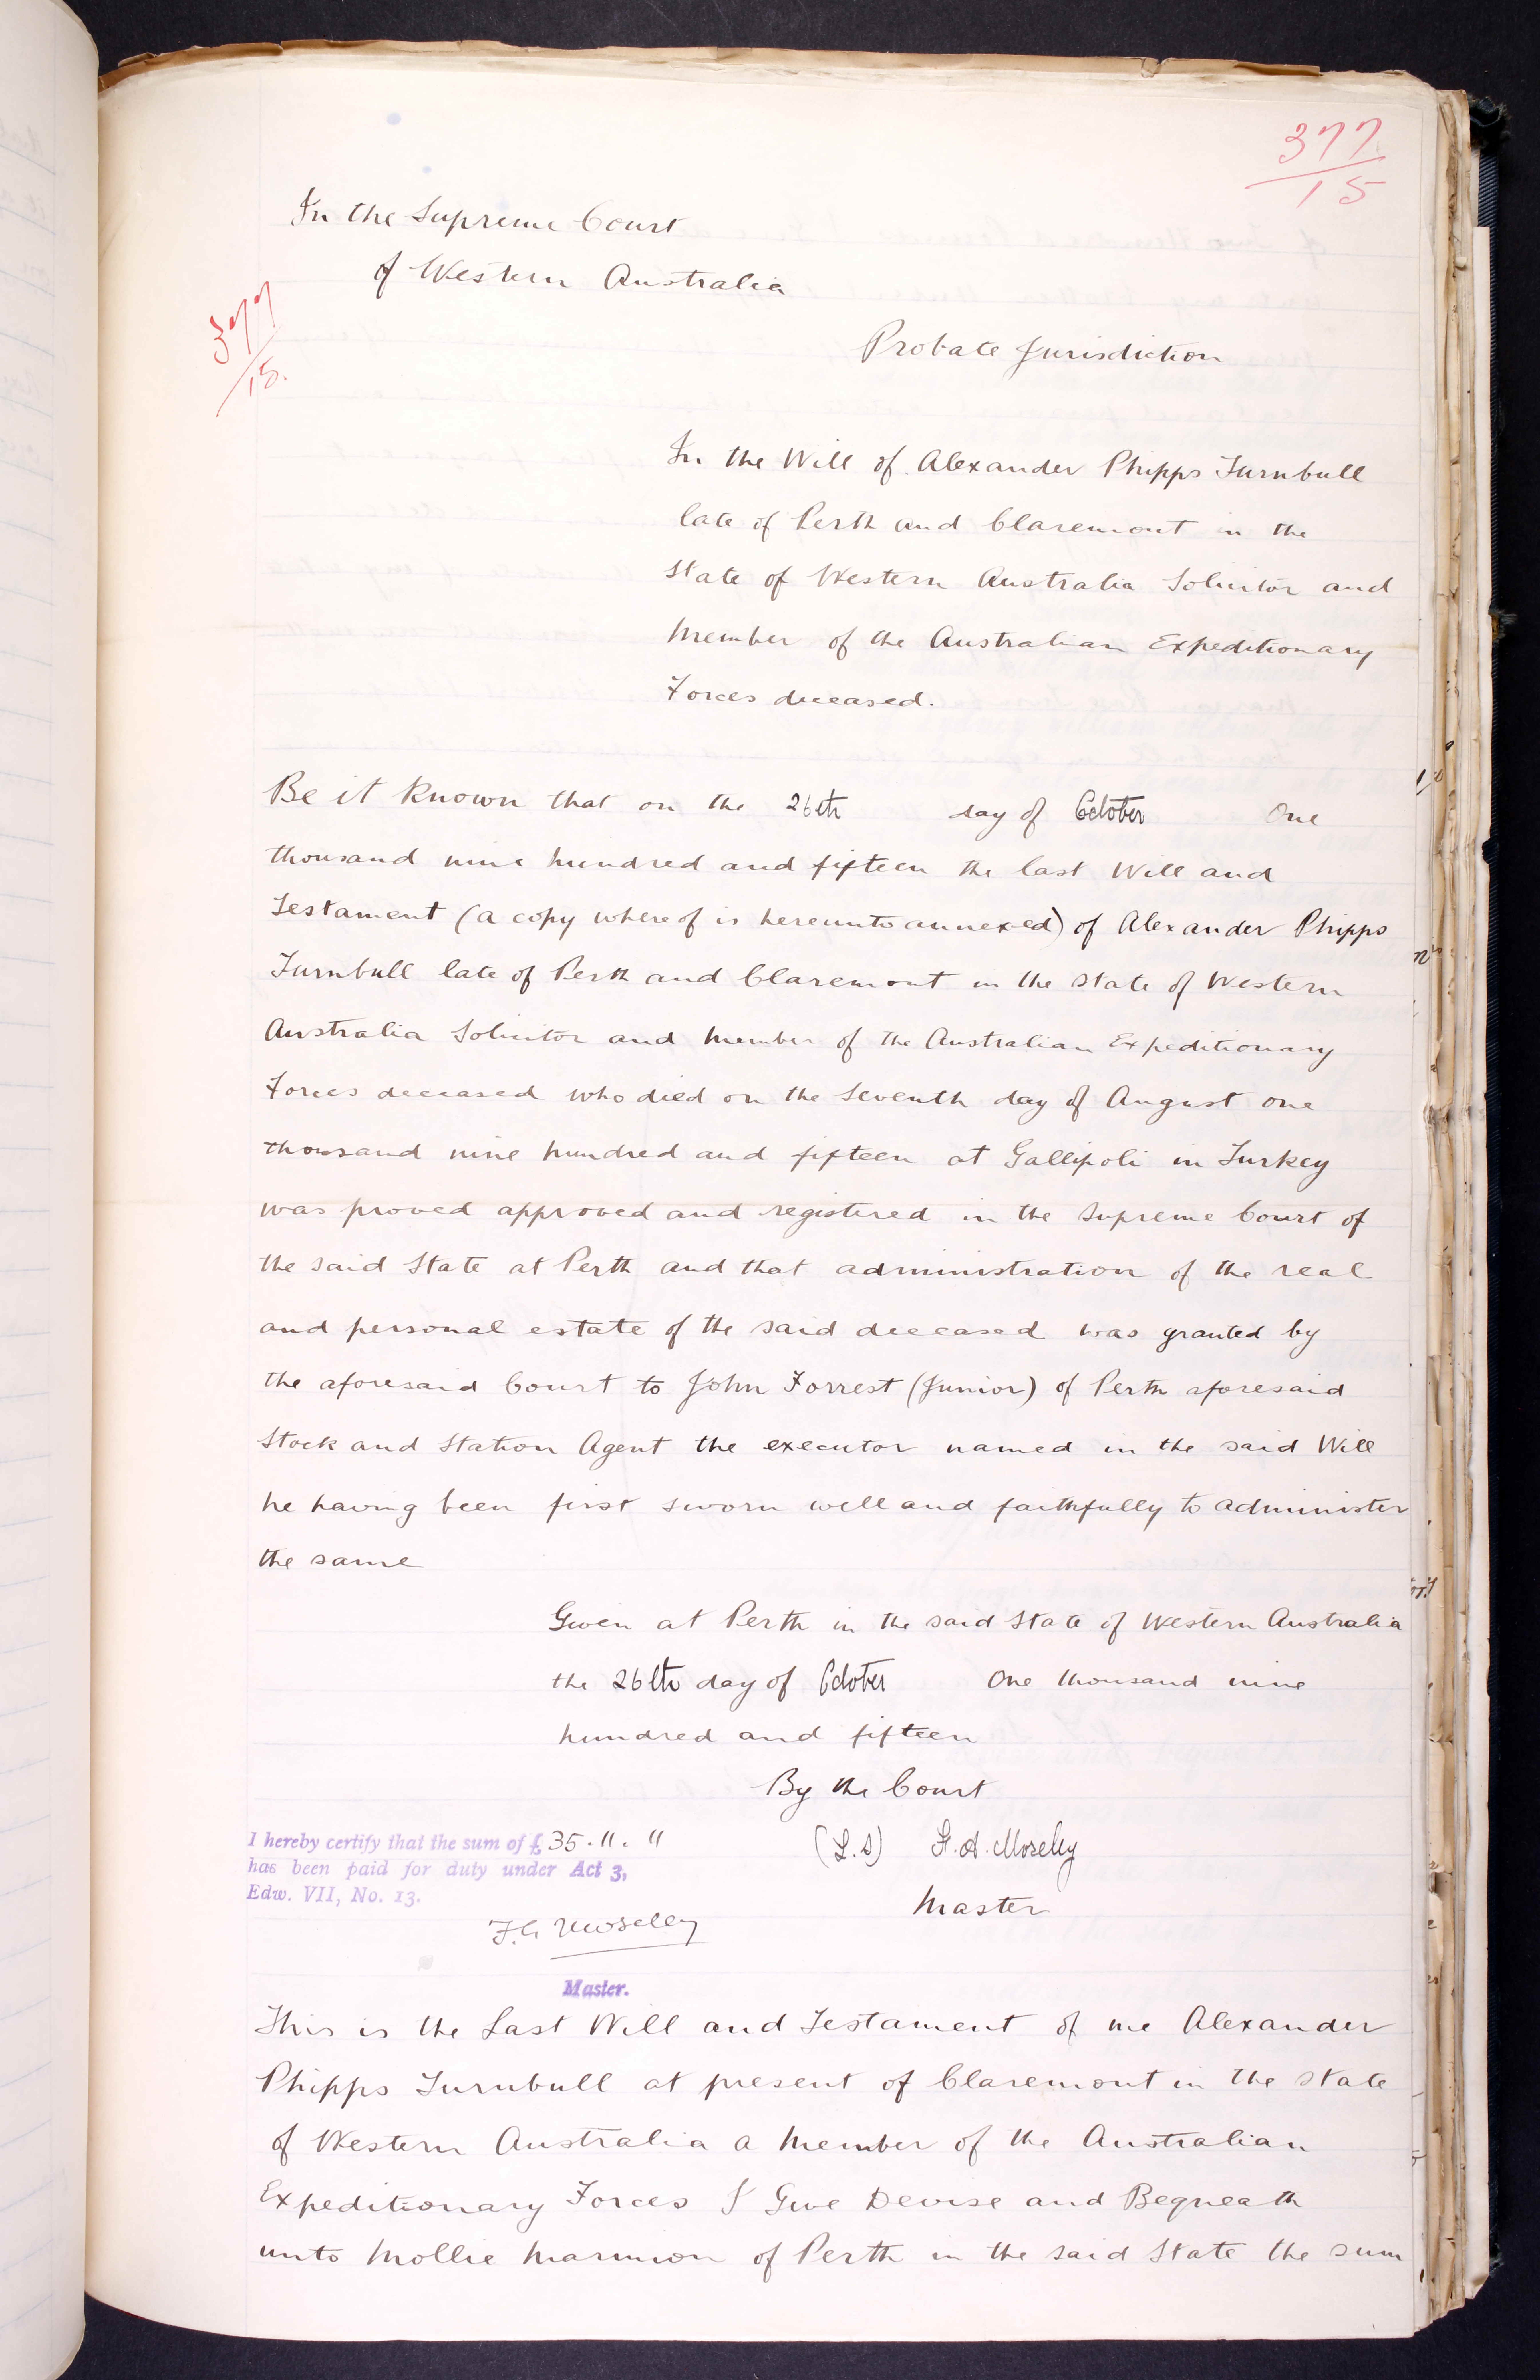 377
15
In the Supreme Court
of Western Australia
377
15.
Probate Jurisdiction
In the Will of Alexander Phipps Turnbull
late of Perth and Claremont in the
State of Western Australia Solicitor and
Member of the Australian Expeditionary
Forces deceased.
Be it known that on the 26th day of October One
thousand nine hundred and fifteen the last Will and
Testament (a copy whereof is hereunto annexed) of Alexander Phipps
Turnbull late of Perth and Claremont in the State of Western
Australia Solicitor and Member of the Australian Expeditionary
Forces deceased who died on the Seventh day of August one
thousand nine hundred and fifteen at Gallipoli in Turkey
was proved approved and registered in the Supreme Court of
the said State at Perth and that administration of the real
and personal estate of the said deceased was granted by
the aforesaid Court to John Forrest (Junior) of Perth aforesaid
Stock and Station Agent the executor named in the said Will
he having been first sworn well and faithfully to administer
the same
Given at Perth in the said State of Western Australia
the 26th day of October One thousand nine
hundred and fifteen
By the Court
I hereby certify that the sum of £ 35 . " . "
has been paid for duty under Act 3,
Edw. VII, No. 13.
F.A. Moseley
Master.
(L.S) F.A. Moseley
Master
This is the Last Will and Testament of me Alexander
Phipps Turnbull at present of Claremont in the State
of Western Australia a Member of the Australian
Expeditionary Forces I Give Devise and Bequeath
unto Mollie Marmion of Perth in the said State the sum